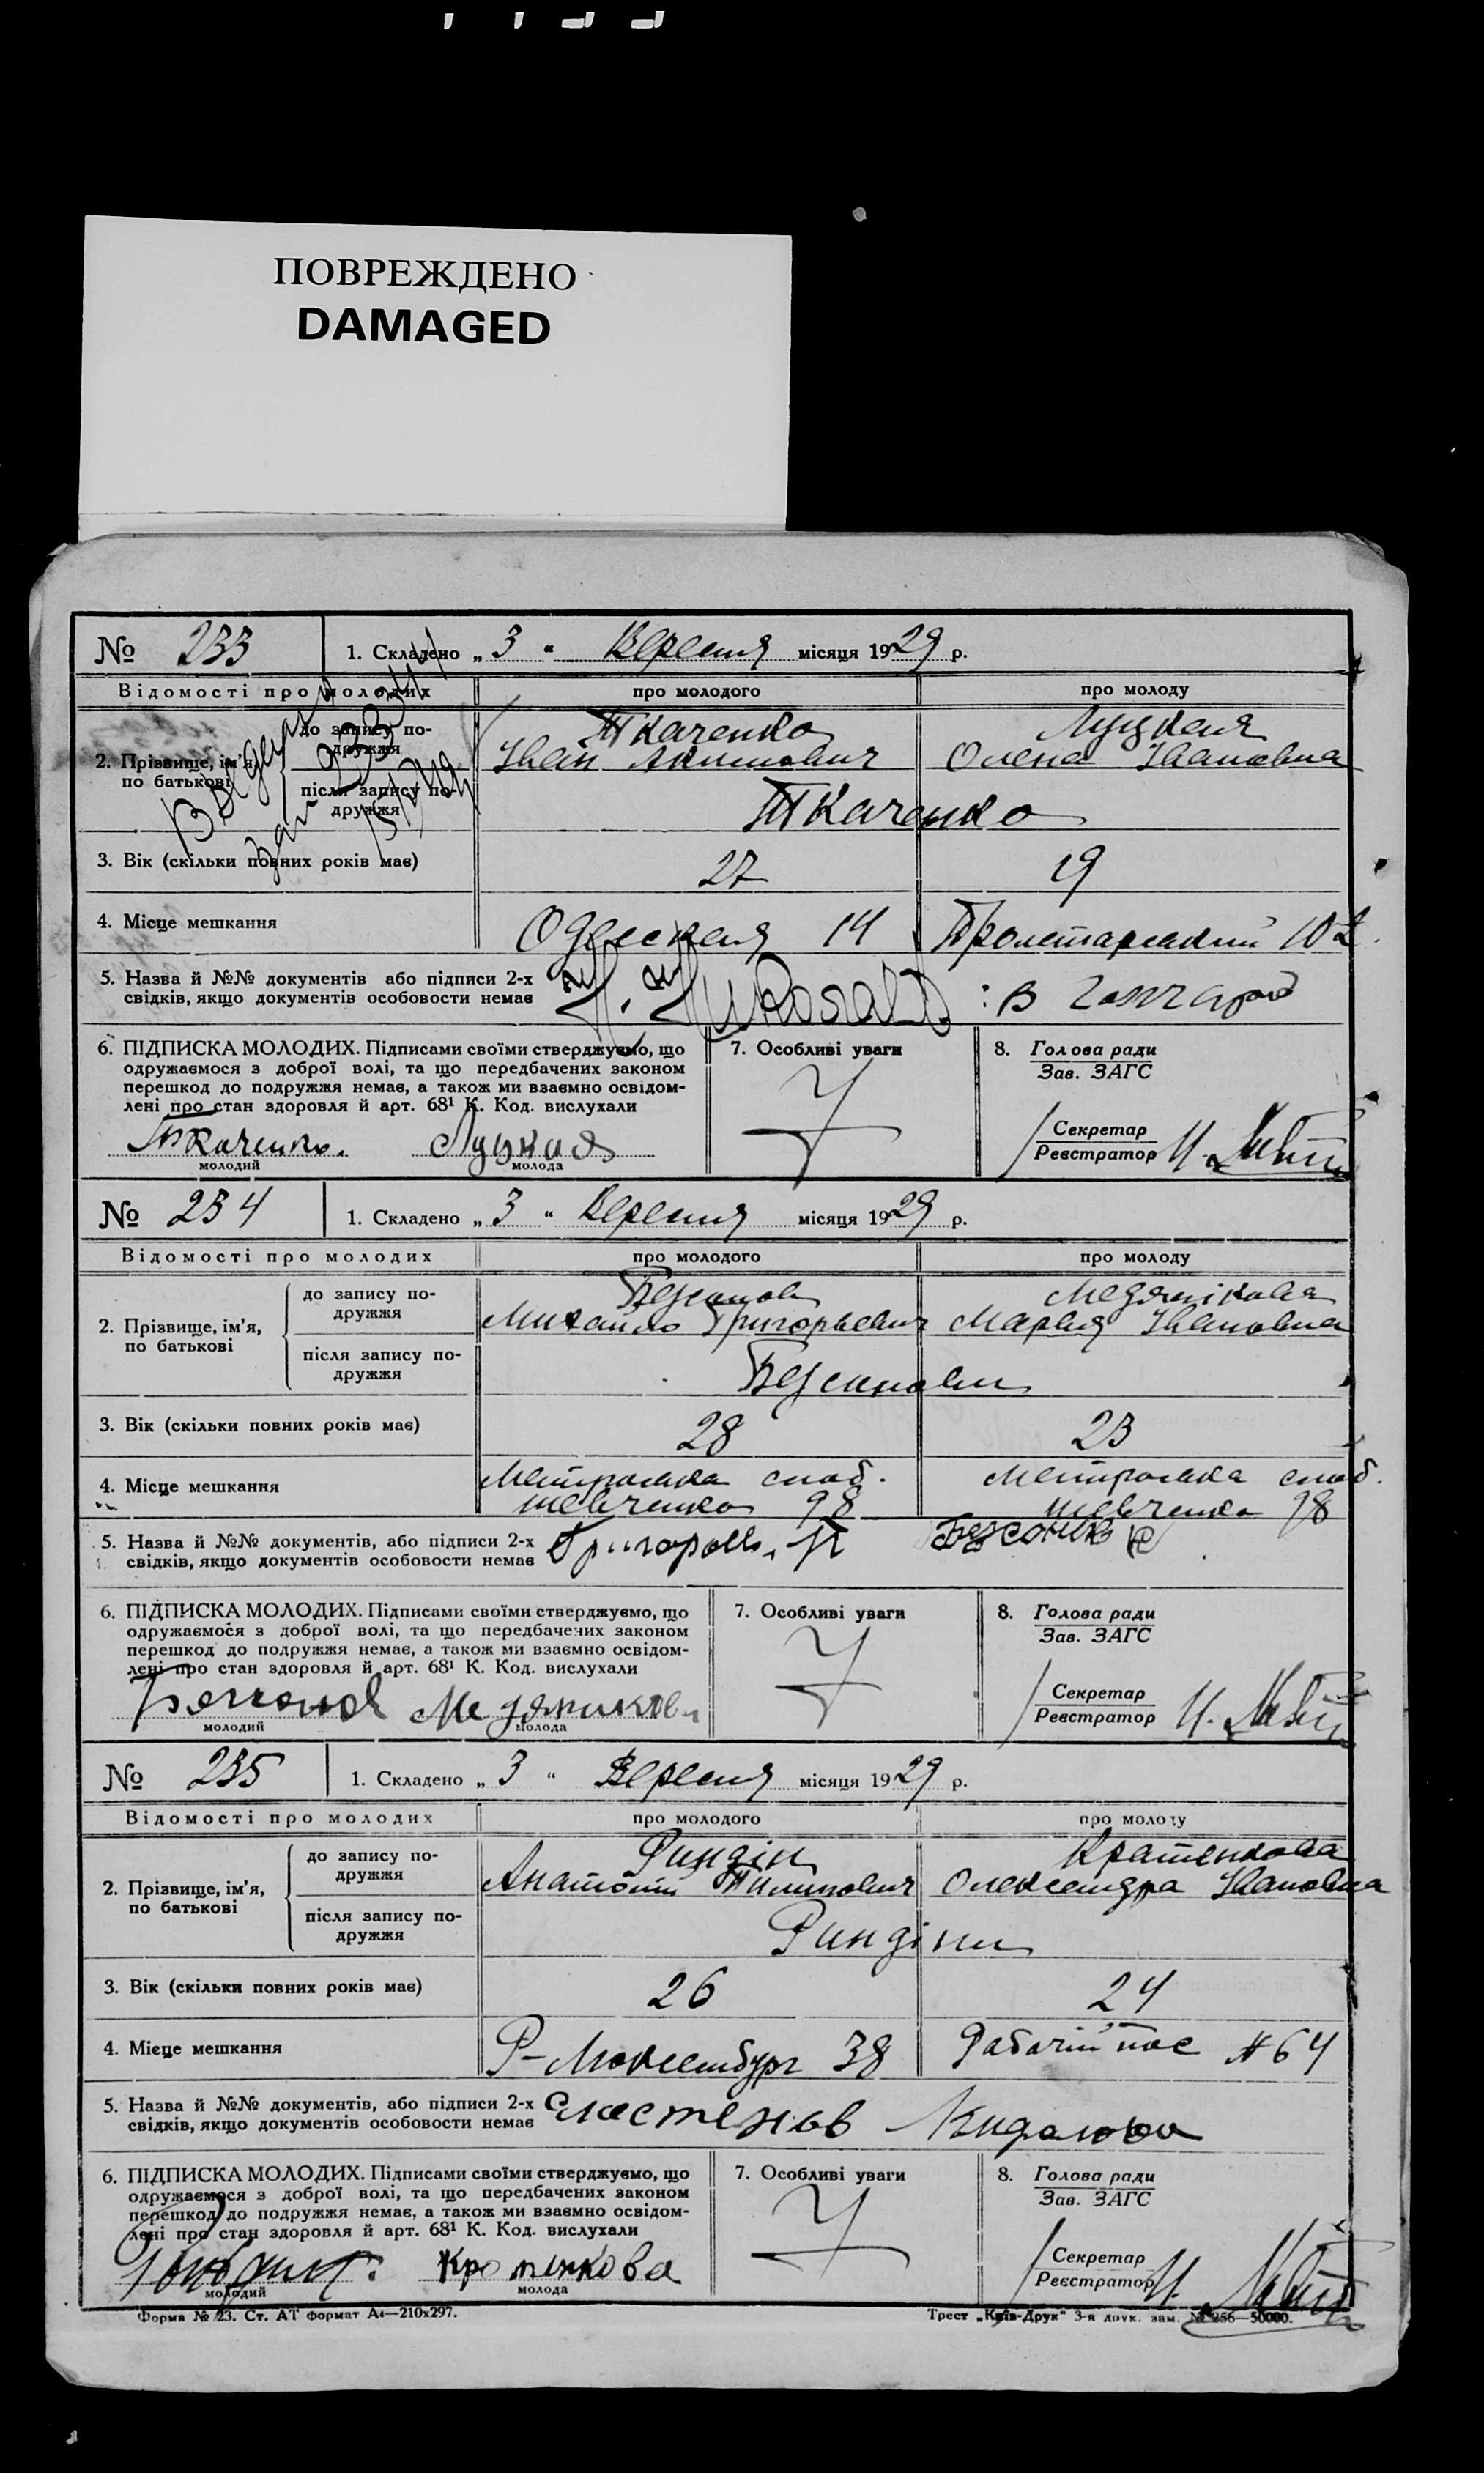 ПОВРЕЖДЕНО
DAMAGED
№ 233 1. Складено „ 3 “ Вересня місяця 1929 р.
Відомості про молодих про молодого про молоду
2. Прізвище, ім’я, по батькові до запису по-дружжя Ткаченко Луцкая
Іван Акимович Олена Івановна
після запису по-дружжя Ткаченко
3. Вік (скільки повних років має) 27 19
4. Місце мешкання Одеская 14 Пролетарский 102
5. Назва й №№ документів або підписи 2-х
свідків, якщо документів особовости немає
6. ПІДПИСКА МОЛОДИХ. Підписами своїми стверджуємо, що
одружаємося з доброї волі, та що передбачених законом
перешкод до подружжя немає, а також ми взаємно освідом-
лені про стан здоровля й арт. 68¹ К. Код. вислухали
7. Особливі уваги
8. Голова ради
Зав. ЗАГС
Ткаченко. Луцкая
молодий молода
Секретар
Реєстратор
№ 234 1. Складено „ 3 “ Вересня місяця 1929 р.
Відомості про молодих про молодого про молоду
2. Прізвище, ім’я, по батькові до запису по-дружжя Безсонов Медянікова
Михайло Григорьевич Мария Івановна
після запису по-дружжя Безсонови
3. Вік (скільки повних років має) 28 23
4. Місце мешкання слоб. слоб.
Шевченко 98 Шевченко 98
5. Назва й №№ документів, або підписи 2-х
свідків, якщо документів особовости немає
6. ПІДПИСКА МОЛОДИХ. Підписами своїми стверджуємо, що
одружаємося з доброї волі, та що передбачених законом
перешкод до подружжя немає, а також ми взаємно освідом-
лені про стан здоровля й арт. 68¹ К. Код. вислухали
7. Особливі уваги
8. Голова ради
Зав. ЗАГС
молодий молода
Секретар
Реєстратор
№ 235 1. Складено „ 3 “ Вересня місяця 1929 р.
Відомості про молодих про молодого про молоду
2. Прізвище, ім’я, по батькові до запису по-дружжя Риндін Кратенкова
Анатолій Пилипович Олександра Івановна
після запису по-дружжя Риндіни
3. Вік (скільки повних років має) 26 24
4. Місце мешкання Р-Люксембург 38 Рабочій пос №64
5. Назва й №№ документів, або підписи 2-х
свідків, якщо документів особовости немає
6. ПІДПИСКА МОЛОДИХ. Підписами своїми стверджуємо, що
одружаємося з доброї волі, та що передбачених законом
перешкод до подружжя немає, а також ми взаємно освідом-
лені про стан здоровля й арт. 68¹ К. Код. вислухали
7. Особливі уваги
8. Голова ради
Зав. ЗАГС
молодий молода
Секретар
Реєстратор
Форма № 23. Ст. АТ формат А4—210x297.
Трест „Київ-Друк“ 3-я друк. зам. № 256—50000.